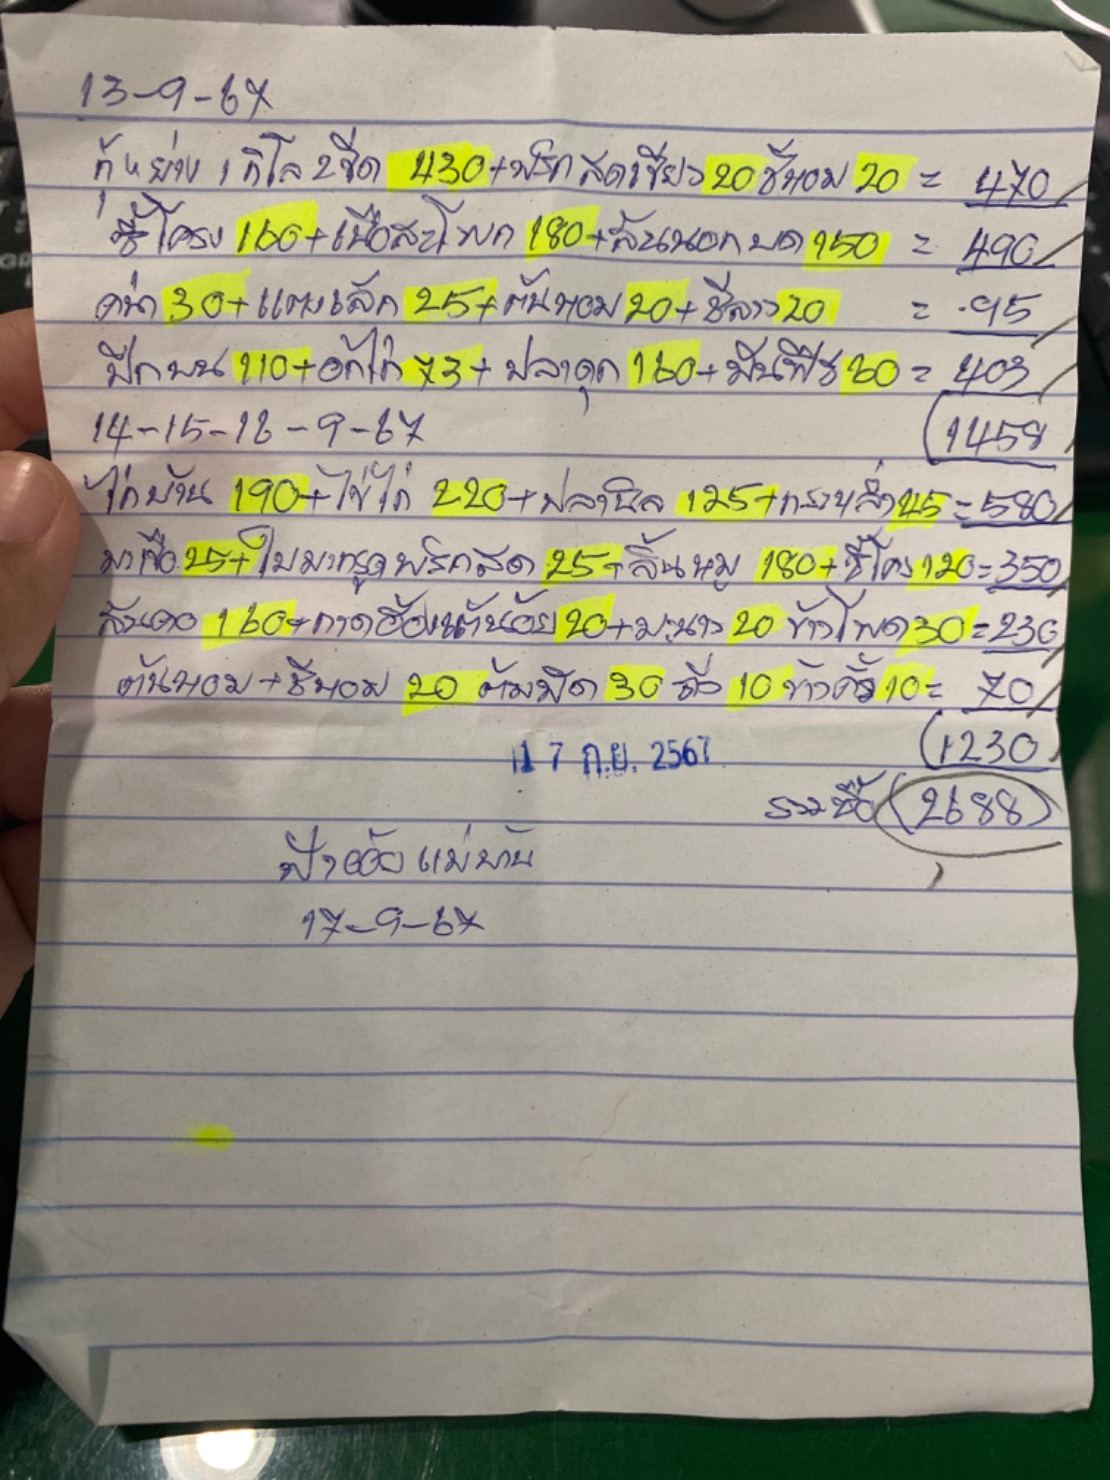 13-9-67
กุ้งหย่าง 1 กิโล 2 ขีด 430+พริกสดเขียว 20 ชีหอม 20 = 470
ซี้โครง 160+เนื้อสะโพก 180+สันนอกบด 150 = 490
คน่า 30+แตงเล็ก 25+ต้นหอม 20+ชีลาว 20 = 95
ปีกบน 110+อกไก่ 73+ปลาดุก 160+ 60 = 403
14-15-16-9-67
(1458
ไก่บ้าน 190+ไข่ไก่ 220+ปลานิล 125+กระหล่ำ 45=580
มาเขือ 25+ใบมากรูดพริกสด 25+ลิ้นหมู 180+ซี้โครง 120=350
สันคอ 160+กาดฮ้องเต้น้อย 20+มะนาว 20 ข้าวโพด 30=230
ต้นหอม+ชีหอม 20 30 ถั่ว 10 ข้าวคั่ว 10= 70
(1230
17 ก.ย. 2567
รวมซื้อ (2688)
แม่บ้าน
17-9-67